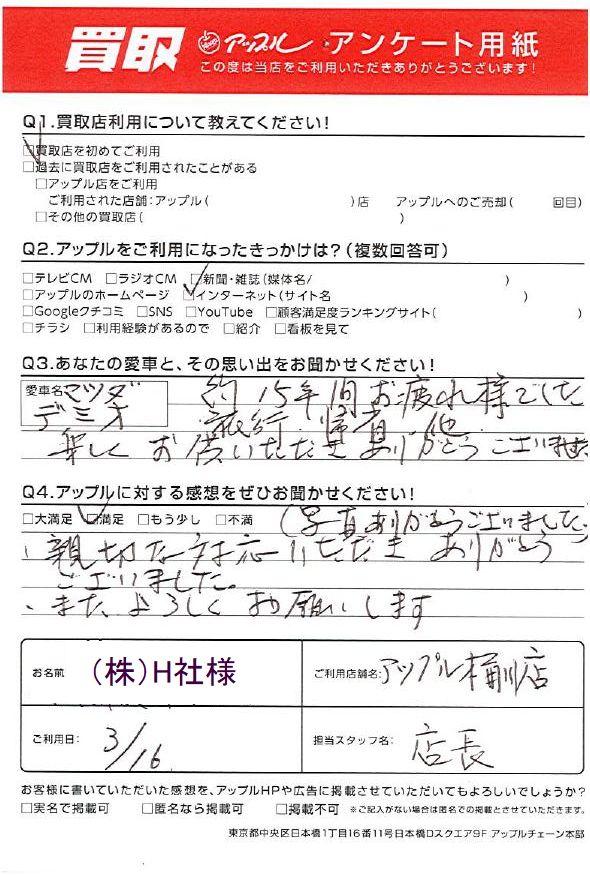 買取 アップル アンケート用紙
この度は当店をご利用いただきありがとうございます!
Q1.買取店利用について教えてください!
□買取店を初めてご利用
□過去に買取店をご利用されたことがある
□アップル店をご利用
ご利用された店舗:アップル( )店 アップルへのご売却( 回目)
□その他の買取店( )
Q2.アップルをご利用になったきっかけは?(複数回答可)
□テレビCM □ラジオCM □新聞・雑誌(媒体名/ )
□アップルのホームページ □インターネット(サイト名 )
□Googleクチコミ □SNS □YouTube □顧客満足度ランキングサイト( )
□チラシ □利用経験があるので □紹介 □看板を見て
Q3.あなたの愛車と、その思い出をお聞かせください!
愛車名 マツダ 約15年間お疲れ様でした
デミオ 旅行、帰省、他
楽しくお供いただきありがとうございました
Q4.アップルに対する感想をぜひお聞かせください!
□大満足 □満足 □もう少し □不満 (写真ありがとうございました。
、親切な対応いただきありがとう
ございました。
、また、よろしくお願いします
お名前 (株)H社様 ご利用店舗名: アップル桶川店
ご利用日: 3/16 担当スタッフ名: 店長
お客様に書いていただいた感想を、アップルHPや広告に掲載させていただいてもよろしいでしょうか?
□実名で掲載可 □匿名なら掲載可 □掲載不可 ※ご記入がない場合は匿名での掲載とさせていただきます。
東京都中央区日本橋1丁目16番11号日本橋Dスクエア9F アップルチェーン本部